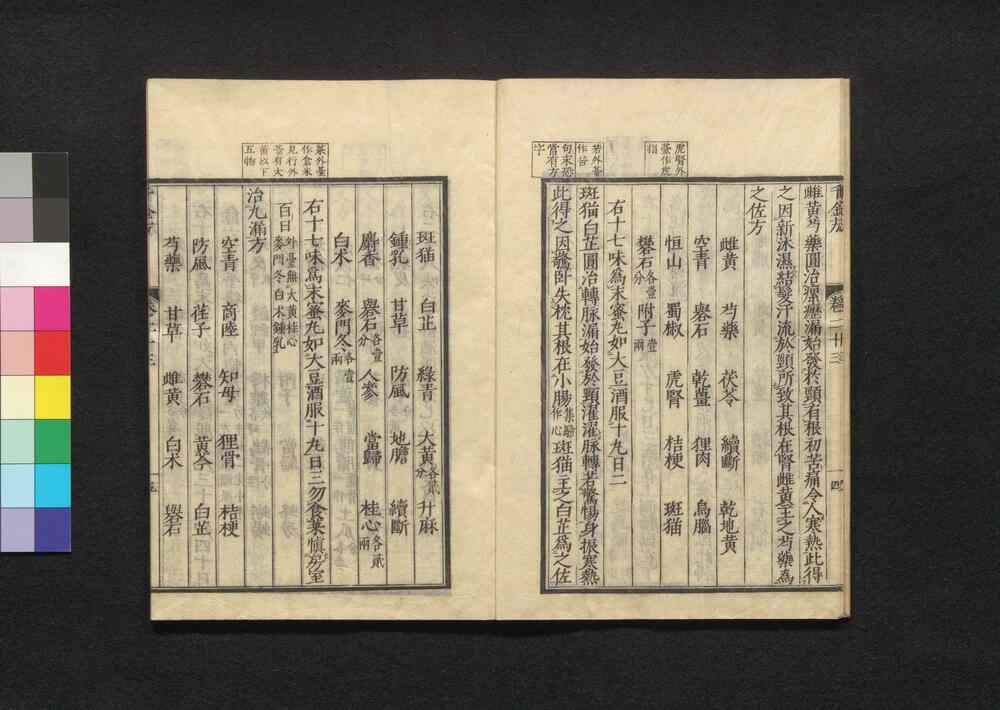 虎腎外
臺作虎
指
若外臺
作苦
句末恐
當有方
字
卷二十三
一四
雌黃芍藥圓治瘰癧漏始發於頸有根初苦痛令人寒熱此得
之因新沐濕結髮汗流於頸所致其根在腎雌黃主之芍藥爲
之佐方
雌黃 芍藥 茯苓 續斷 乾地黃
空青 礜石 乾薑 狸肉 烏腦
恒山 蜀椒 虎腎 桔梗 斑猫
礬石各壹分 附子壹兩
右十七味爲末蜜丸如大豆酒服十丸日二
斑猫白芷圓治轉脉漏始發於頸濯濯脉轉若驚惕身振寒熱
此得之因驚卧失枕其根在小腸集驗作心斑猫主之白芷爲之佐
菜外臺
作倉米
見行外
臺有大
黃以下
五物
斑猫 白芷 綠青 大黃各貳分 升麻
鍾乳 甘草 防風 地膽 續斷
麝香 礜石各壹分 人參 當歸 桂心各貳兩
白术 麥門冬各壹兩
右十七味爲末蜜丸如大豆酒服十丸日三勿食菜愼房室
百日外臺無大黃桂心麥門冬白术鍾乳
治九漏方
空青 商陸 知母 狸骨 桔梗
防風 荏子 礬石 黃芩 白芷
芍藥 甘草 雌黃 白术 礜石
一五